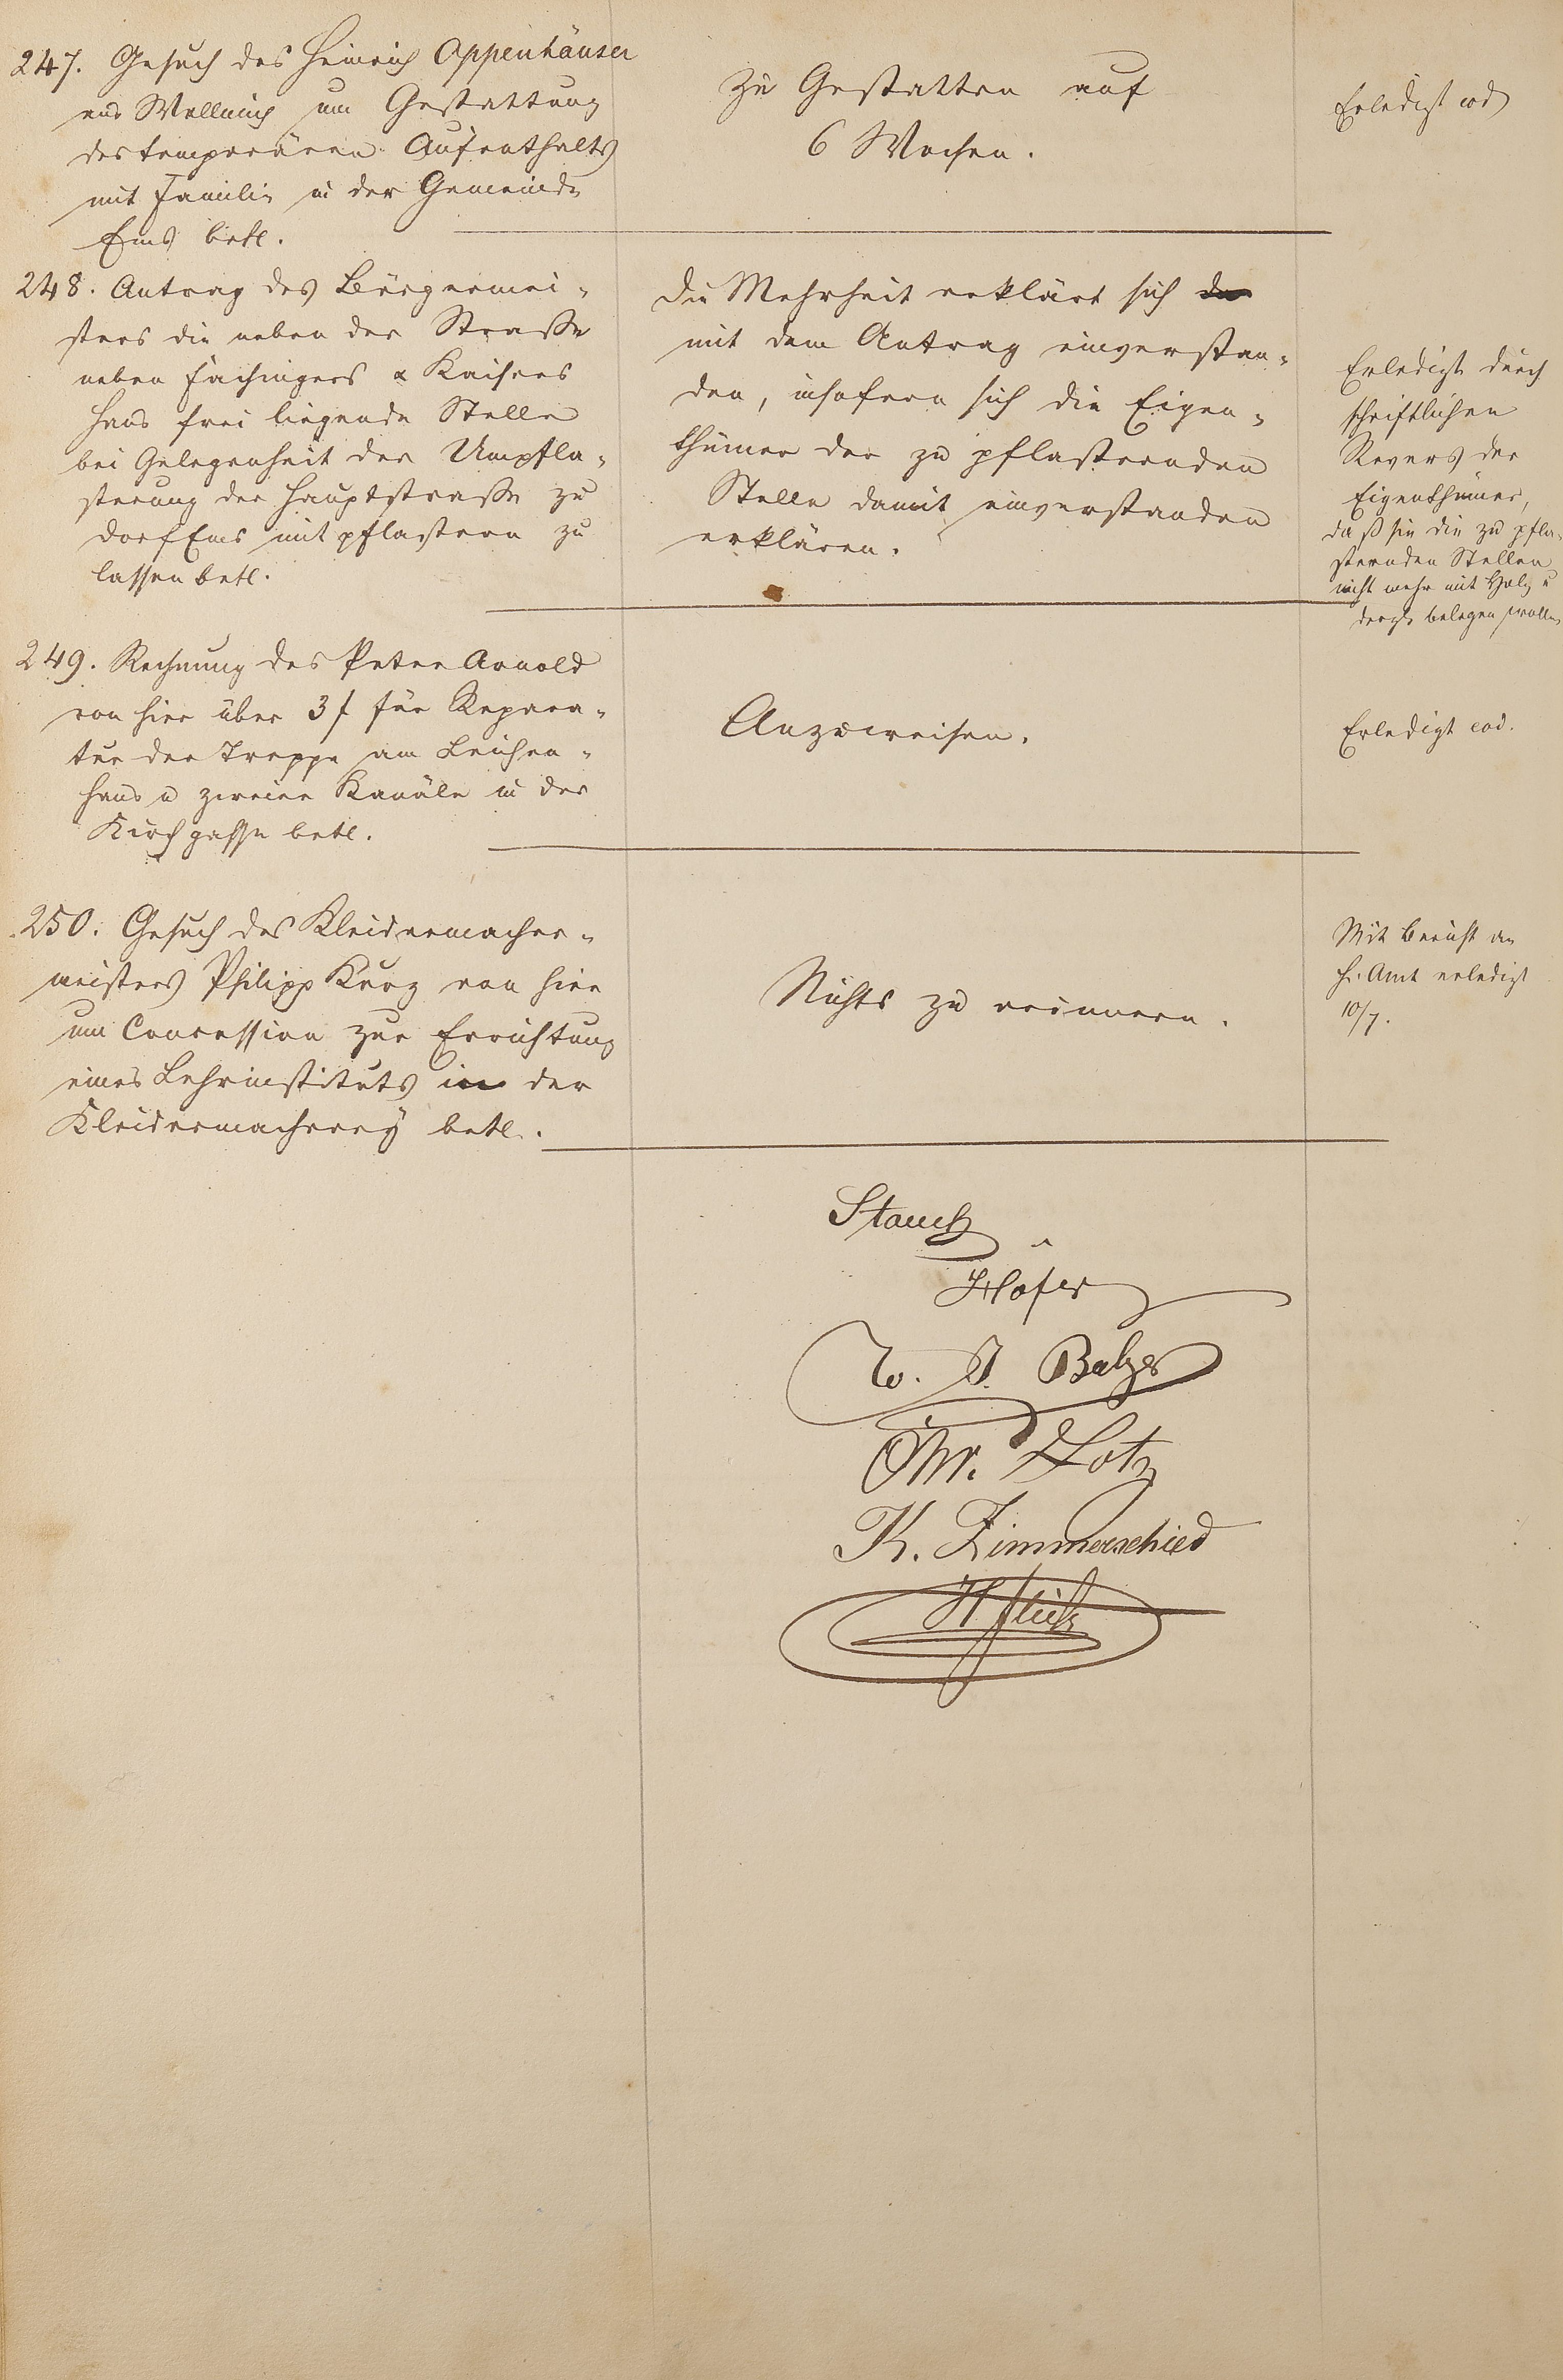 247. Gesuch des Heinrich Oppenhäuser
aus Wellmich um Gestattung
des temporären Aufenthalts
mit Familie in der Gemeinde
Ems betl.
zu Gestatten auf
6 Wochen.
Erledigt eod
248. Antrag des Bürgermei-
sters die neben der Straße
neben Fachingers & Kaisers
Haus frei liegende Stelle
bei Gelegenheit der Umpfla-
sterung der Hauptstraße zu
Dorf Ems mit pflastern zu
lassen betl.
Die Mehrheit erklärt sich
mit dem Antrag einverstan-
den, insofern sich die Eigen-
thümer der zu pflasternden
Stelle damit einverstanden
erklären.
Erledigt durch
schriftlichen
Revers der
Eigenthümer,
daß sie die zu pfla-
sternden Stellen
nicht mehr mit Holz u
dergl. belegen wollen
249. Rechnung des Peter Arnold
von hier über 3 f für Repara-
tur der Treppe am Leichen-
haus u zweier Kanäle in der
Kirchgasse betl.
Anzuweisen.
Erledigt eod.
250. Gesuch des Kleidermacher-
meisters Philipp Kurz von hier
um Concession zur Errichtung
eines Lehrinstituts in der
Kleidermacherey betl.
Nichts zu erinnern.
Mit Bericht an
H. Amt erledigt
10/7.
Stauch
Höfer
W. J. Balzer
Chr. Lotz
K. Zimmerschied